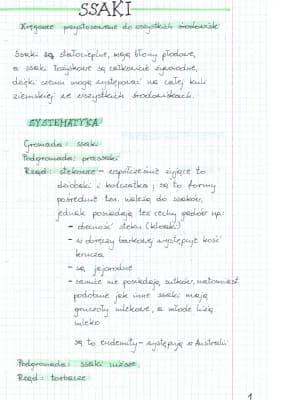 SSAKI
Kręgowce przystosowane do wszystkich środowisk
Ssaki są stałocieplne, mają błony płodowe,
a ssaki łożyskowe są całkowicie żyworodne,
dzięki czemu mogą występować na całej kuli
ziemskiej we wszystkich środowiskach.
SYSTEMATYKA
Gromada: ssaki
Podgromada: prassaki
Rząd: stekowce - współcześnie żyjące to
dziobak i kolczatka; są to formy
pośrednie tzn. należą do ssaków,
jednak posiadają też cechy gadów np:
- obecność steku (kloaki)
- w obręczy barkowej występuje kość
krucza
- są jajorodne
- samice nie posiadają sutków, natomiast
podobnie jak inne ssaki mają
gruczoły mlekowe, a młode liżą
mleko
są to endemity - występują w Australii
Podgromada: ssaki niższe
Rząd: torbacze
1